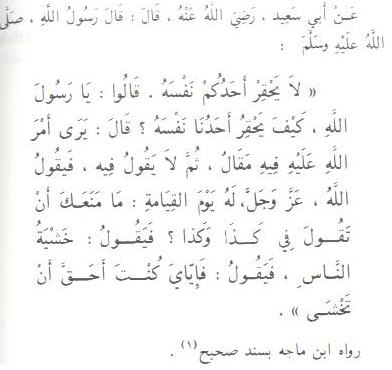 عَـنْ أَبي سَعِيد ، رَضِيَ اللَّهُ عَنْهُ ، قَالَ : قَالَ رَسُولُ اللَّهِ ، صَلَّى
اللَّهُ عَلَيْهِ وَسَلَّمَ :
« لاَ يَحْقِرْ أَحَدُكُمْ نَفْسَهُ . قَالُوا : يَا رَسُولَ
اللَّهِ ، كَيْفَ يَحْقِرُ أَحَدُنَا نَفْسَهُ ؟ قَالَ : يَرَى أَمْرَ
اللَّهِ عَلَيْهِ فِيهِ مَقَالٌ ، ثُمَّ لاَ يَقُولُ فِيهِ ، فَيَقُولُ
اللَّهُ ، عَزَّ وَجَلَّ، لَهُ يَوْمَ القِيَامَةِ : مَا مَنَعَـكَ أَنْ
تَقُـولَ فِي كَـذَا وَكَذا ؟ فَيَقُـولُ : خَشْيَةُ
النَّـاسِ ، فَيَقُولُ : فَإِيَّايَ كُنْـتَ أَحَـقَّ أَنْ
تَخْشَـى » .
رواه ابن ماجه بسند صحيح(١) .